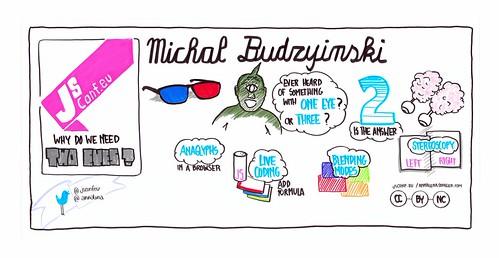 Michal Budzyinski
JS
Conf.eu
WHY DO WE NEED
TWO EYES?
EVER HEARD
OF SOMETHING
WITH ONE EYE?
OR THREE?
2
IS THE ANSWER
ANAGLYPHS
IN A BROWSER
JS
LIVE
CODING
ADD
FORMULA
BLENDING
MODES
STEREOSCOPY
LEFT RIGHT
@jsconfeu
CC BY NC